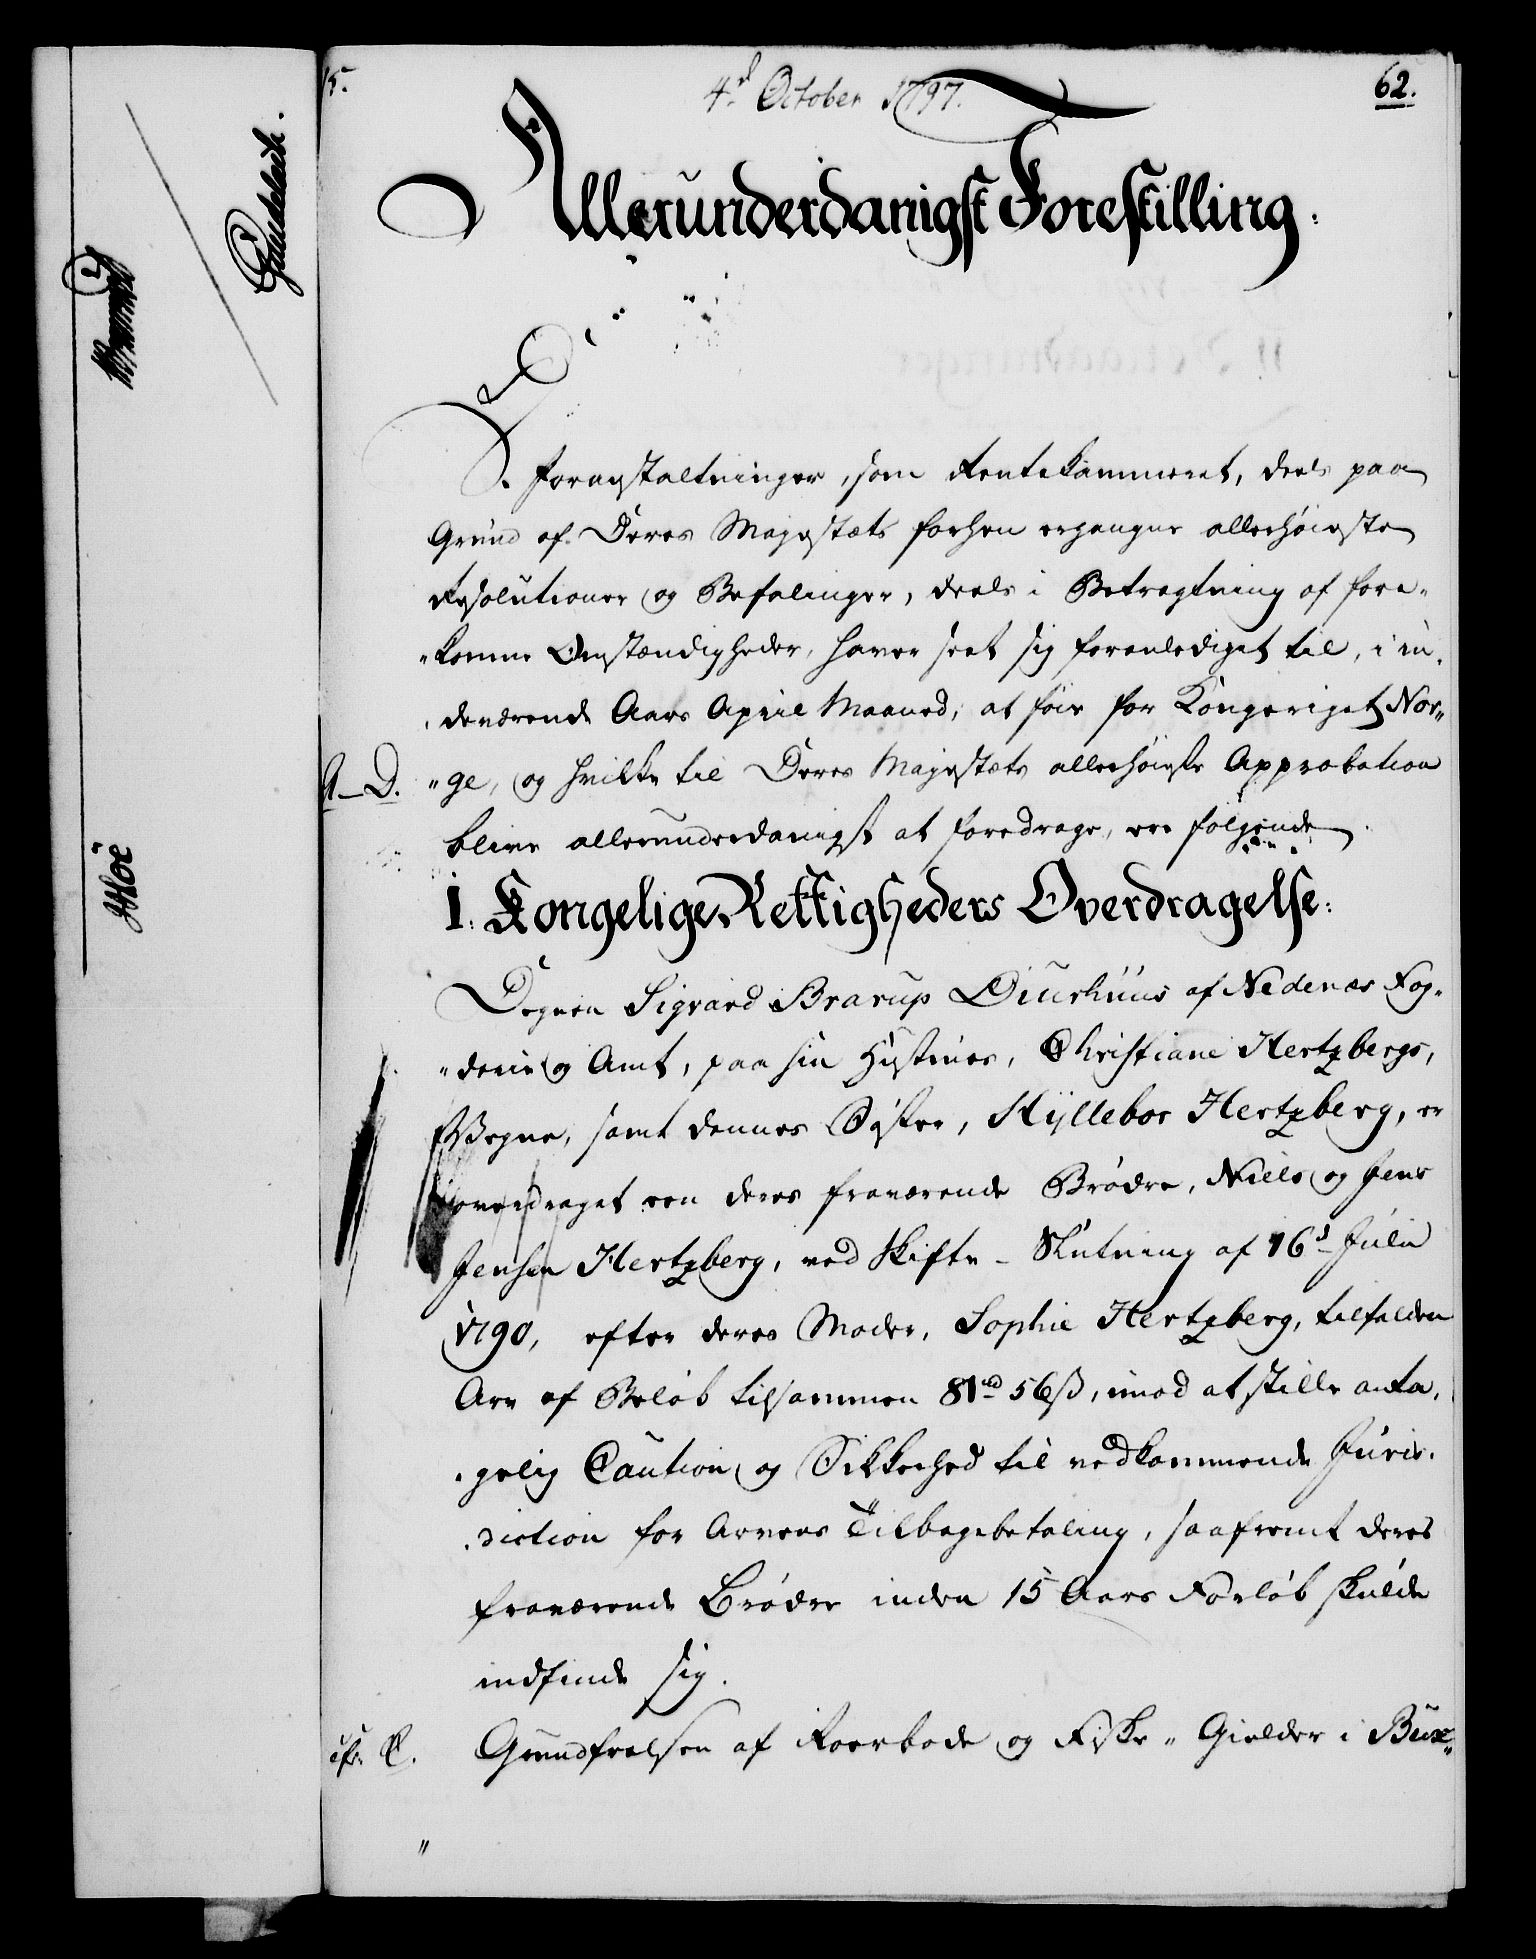 15.
4d October 1797.
62.
Allerunderdanigst Forestilling.
De Foranstaltninger, som Rentekammeret, deels paa
Grund af Deres Majestæts forhen ergangne allerhøieste
Resolutioner og Befalinger, deels i Betragtning af fore„
„komne Omstændigheder, haver seet sig foranlediget til, i in„
„deværende Aars April Maaned, at føie for Kongeriget Nor„
A–D. „ge, og hvilke til Deres Majestæts allerhøieste Approbation
blive allerunderdanigst at foredrage, ere følgende
I. Kongelige Rettigheders Overdragelse.
Degnen Sigvard Brarup Diurhuus af Nedenæs Fog„
„derie og Amt, paa sin Hustrues, Christiane Hertzbergs,
Vegne, samt dennes Søster, Hyllebor Hertzberg, er
overdraget een deres fraværende Brødre, Niels og Jens
Jensen Hertzberg, ved Skifte-Slutning af 16d Julii
1790, efter deres Moder, Sophie Hertzberg, tilfalden
Arv af Beløb tilsammen 81rd 56ß, imod at stille anta„
„gelig Caution og Sikkerhed til vedkommende Juris„
„diction for Arvens Tilbagebetaling, saafremt deres
fraværende Brødre inden 15 Aars Forløb skulde
indfinde sig.
cfr. E. Grundfrelsen af Roerbode og Fiske„Gielder i Bux„
Moe